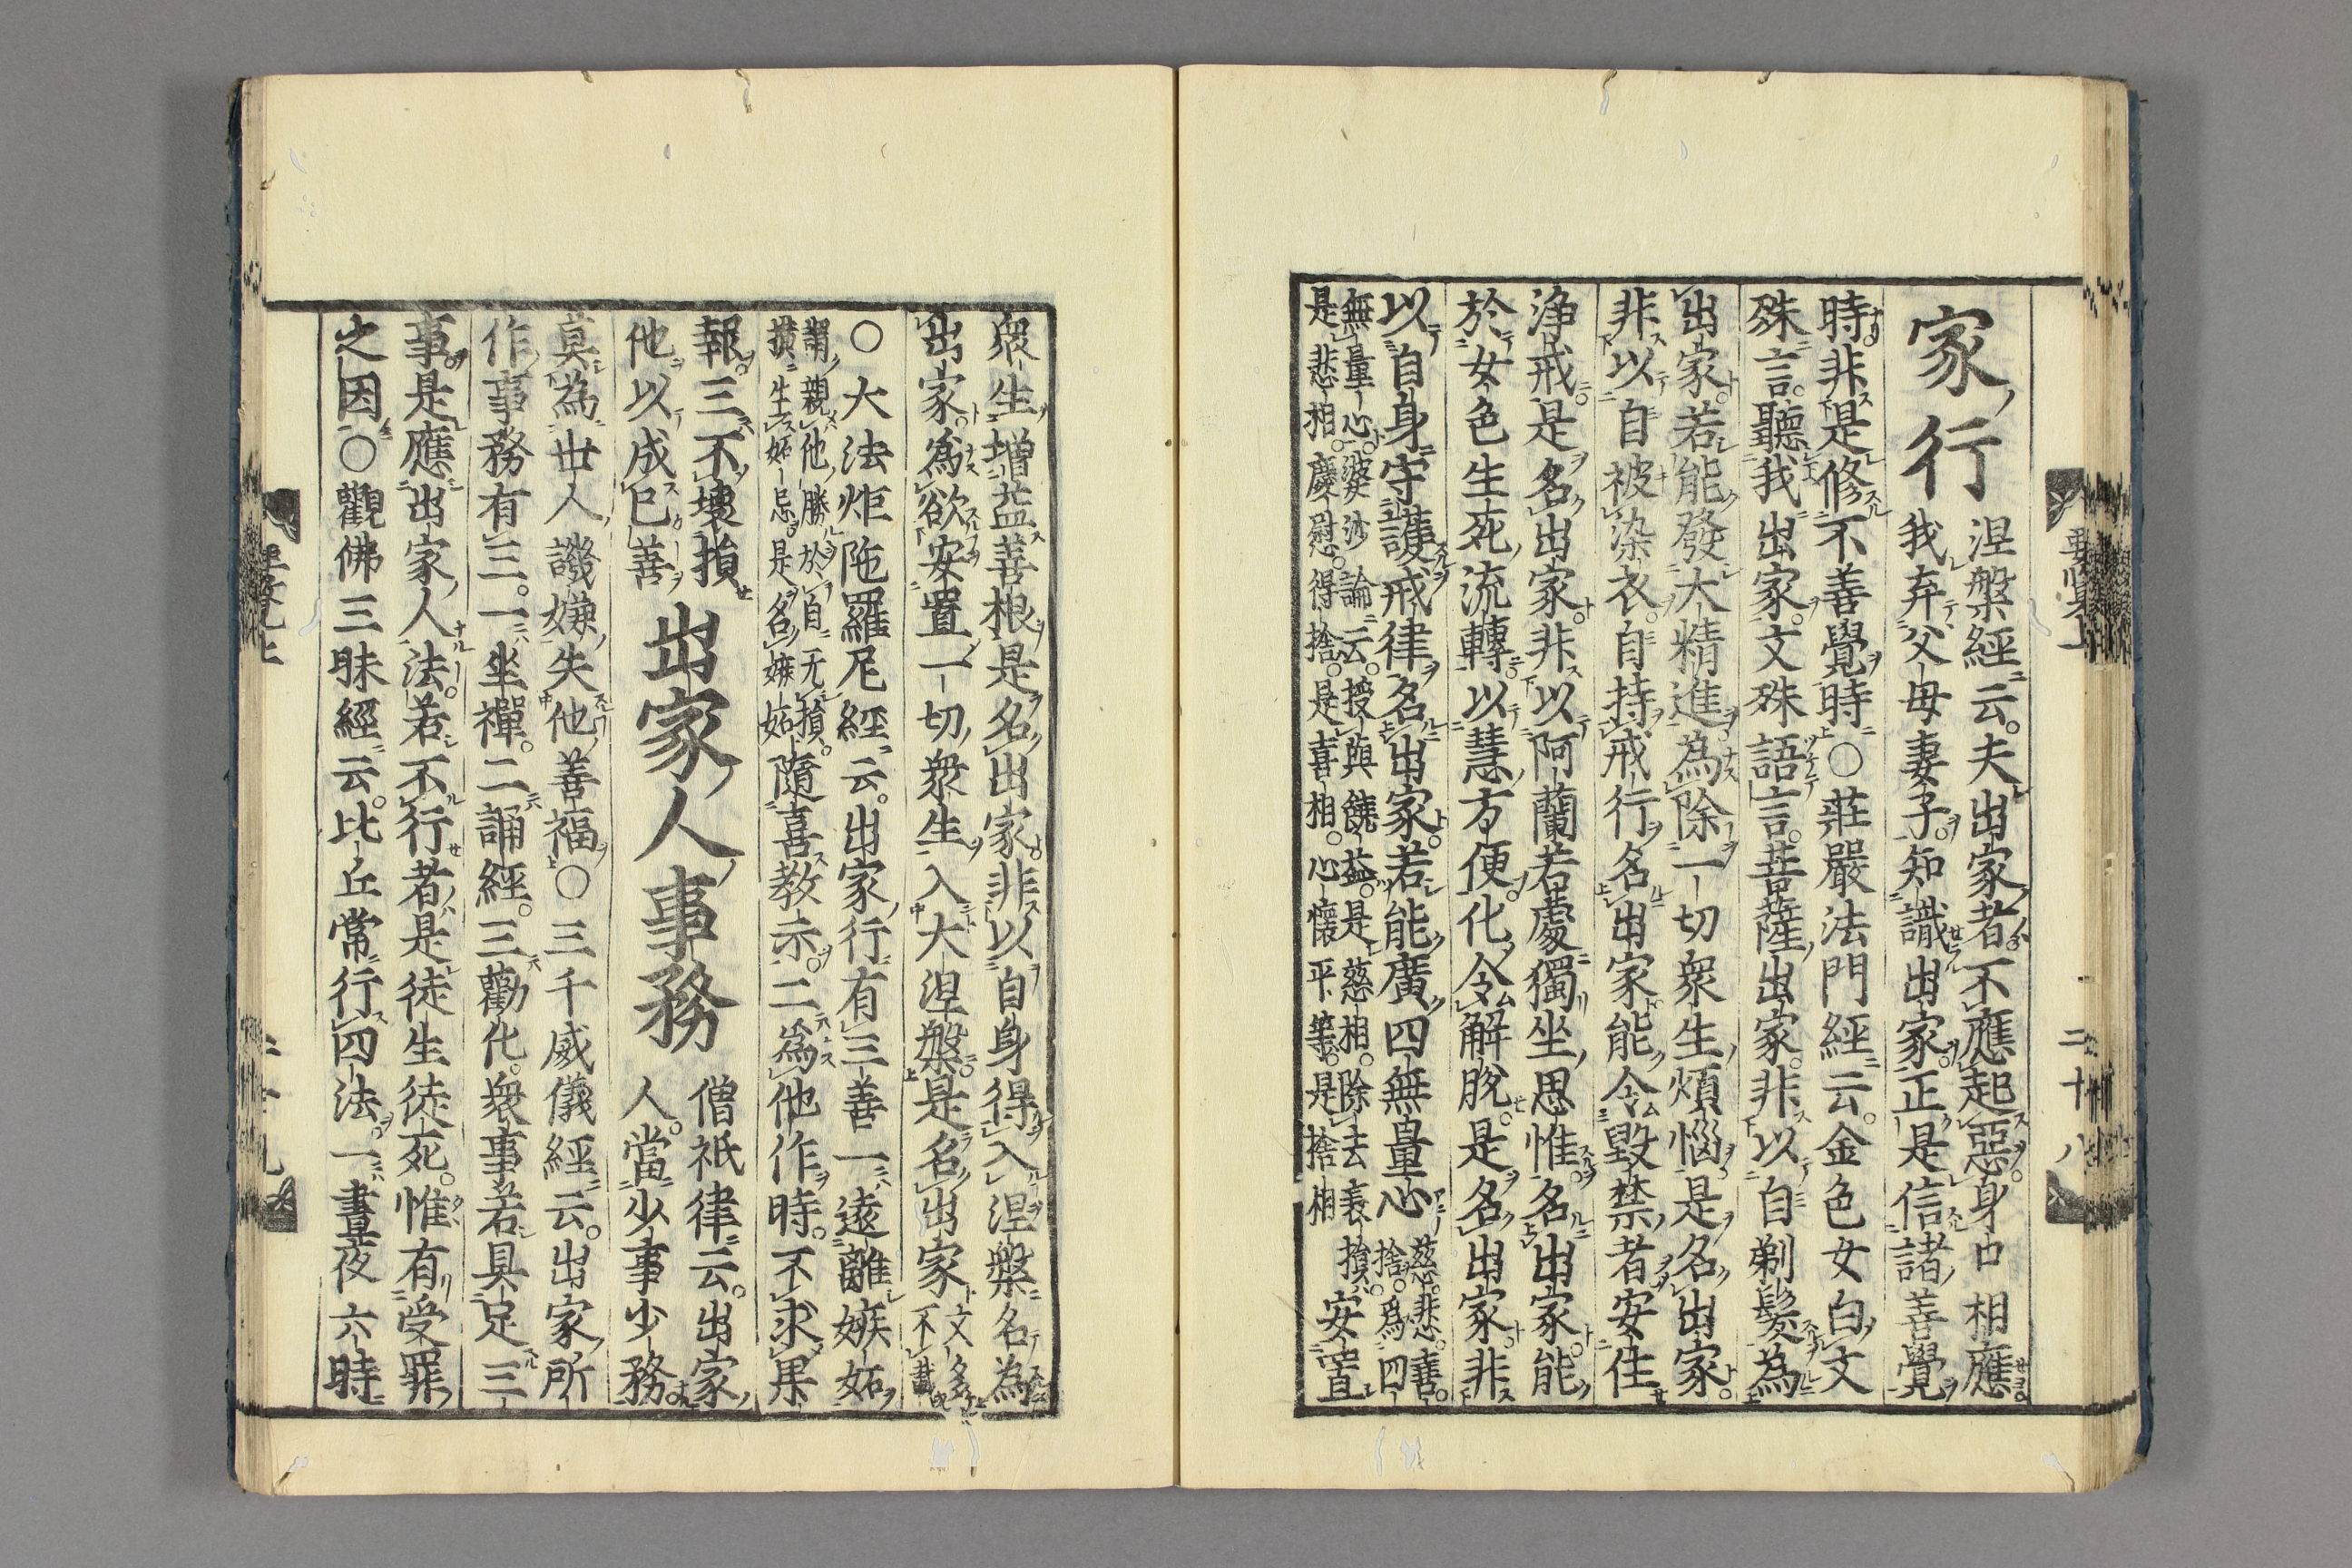 家行
涅槃經云。夫出家者不應起惡。身口相應
我弃父母妻子。知識出家。正是信諸善覺
時非是修不善覺時○莊嚴法門經云。金色女白文
殊言。聽我出家。文殊語言。菩薩出家。非以自剃髮為
出家。若能發大精進。為除一切衆生煩惱是名出家。
非以自被染衣。自持戒行名出家能令毀禁者安住
淨戒。是名出家。非以阿蘭若處獨坐思惟。名出家。能
於女色生死流轉。以慧方便化令解脫。是名出家。非
以自身守護戒律名出家。若能廣四無量心
慈。悲。喜。
捨。為四
無量心。婆沙論云。授與饒益。是慈相。除去衰損。
是悲相。慶慰。得捨。是喜相。心懷平等。是捨相
安置
衆生增益善根是名出家。非以自身得入涅槃名為
出家。為欲安置一切衆生入大涅槃。是名出家
文多
不載
○大法炬陁羅尼經云。出家行有三善一遠離嫉妬
謂親他勝於自无損。
損生妬忌。是名嫉妬
隨喜教示。二為他作時。不求果
報。三不壞損
他以成已善
出家人事務
僧祇律云。出家
人。當少事少務。
莫為世人譏嫌失他善福○三千威儀經云。出家所
作事務有三。一坐禪。二誦經。三勸化。衆事若具足三
事。是應出家人法。若不行者是徒生徒死。惟有受罪
之因○觀佛三昧經云。比丘常行四法。一晝夜六時
要覧上
二十八